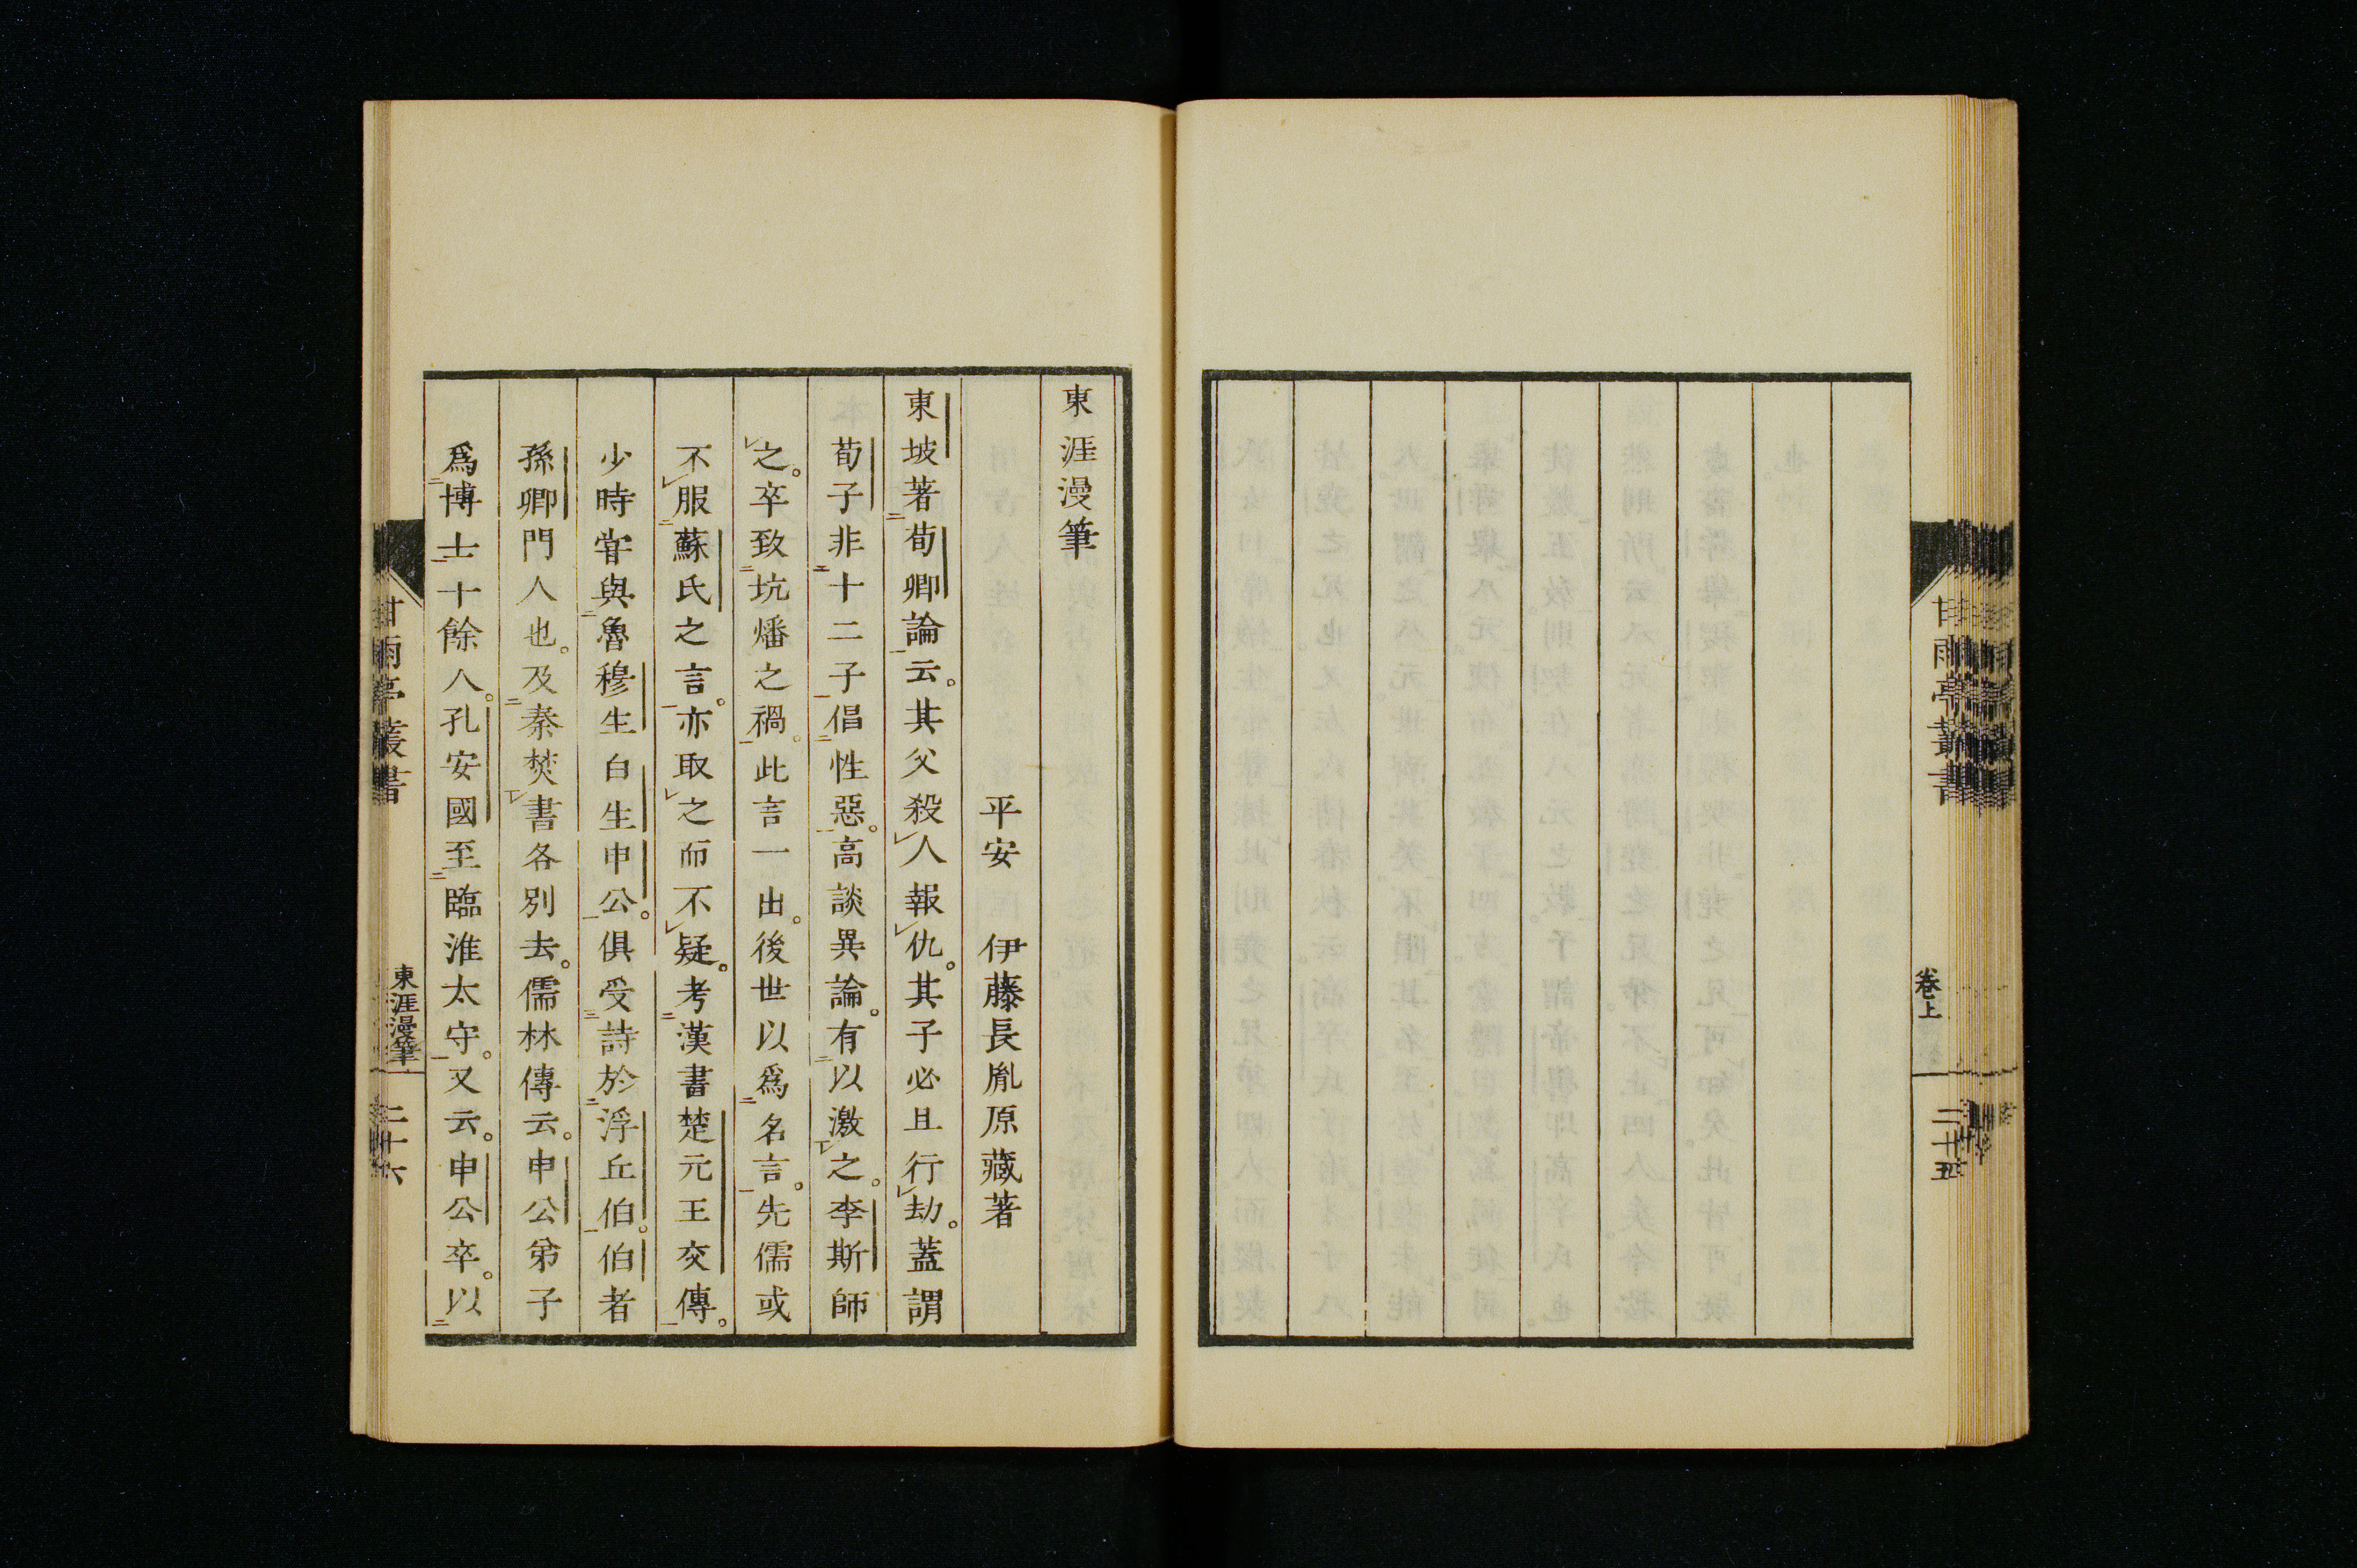 甘雨亭叢書
卷上
二十五
東涯漫筆
平安　伊藤長胤原藏著
東坡著荀卿論云。其父殺人報仇。其子必且行劫。蓋謂
荀子非十二子倡性惡。高談異論。有以激之。李斯師
之。卒致坑燔之禍。此言一出。後世以爲名言。先儒或
不服蘇氏之言。亦取之而不疑。考漢書楚元王交傳。
少時甞與魯穆生白生申公。俱受詩於浮丘伯。伯者
孫卿門人也。及秦焚書各別去。儒林傳云。申公弟子
爲博士十餘人。孔安國至臨淮太守。又云。申公卒。以
甘雨亭叢書
東涯漫筆
二十六